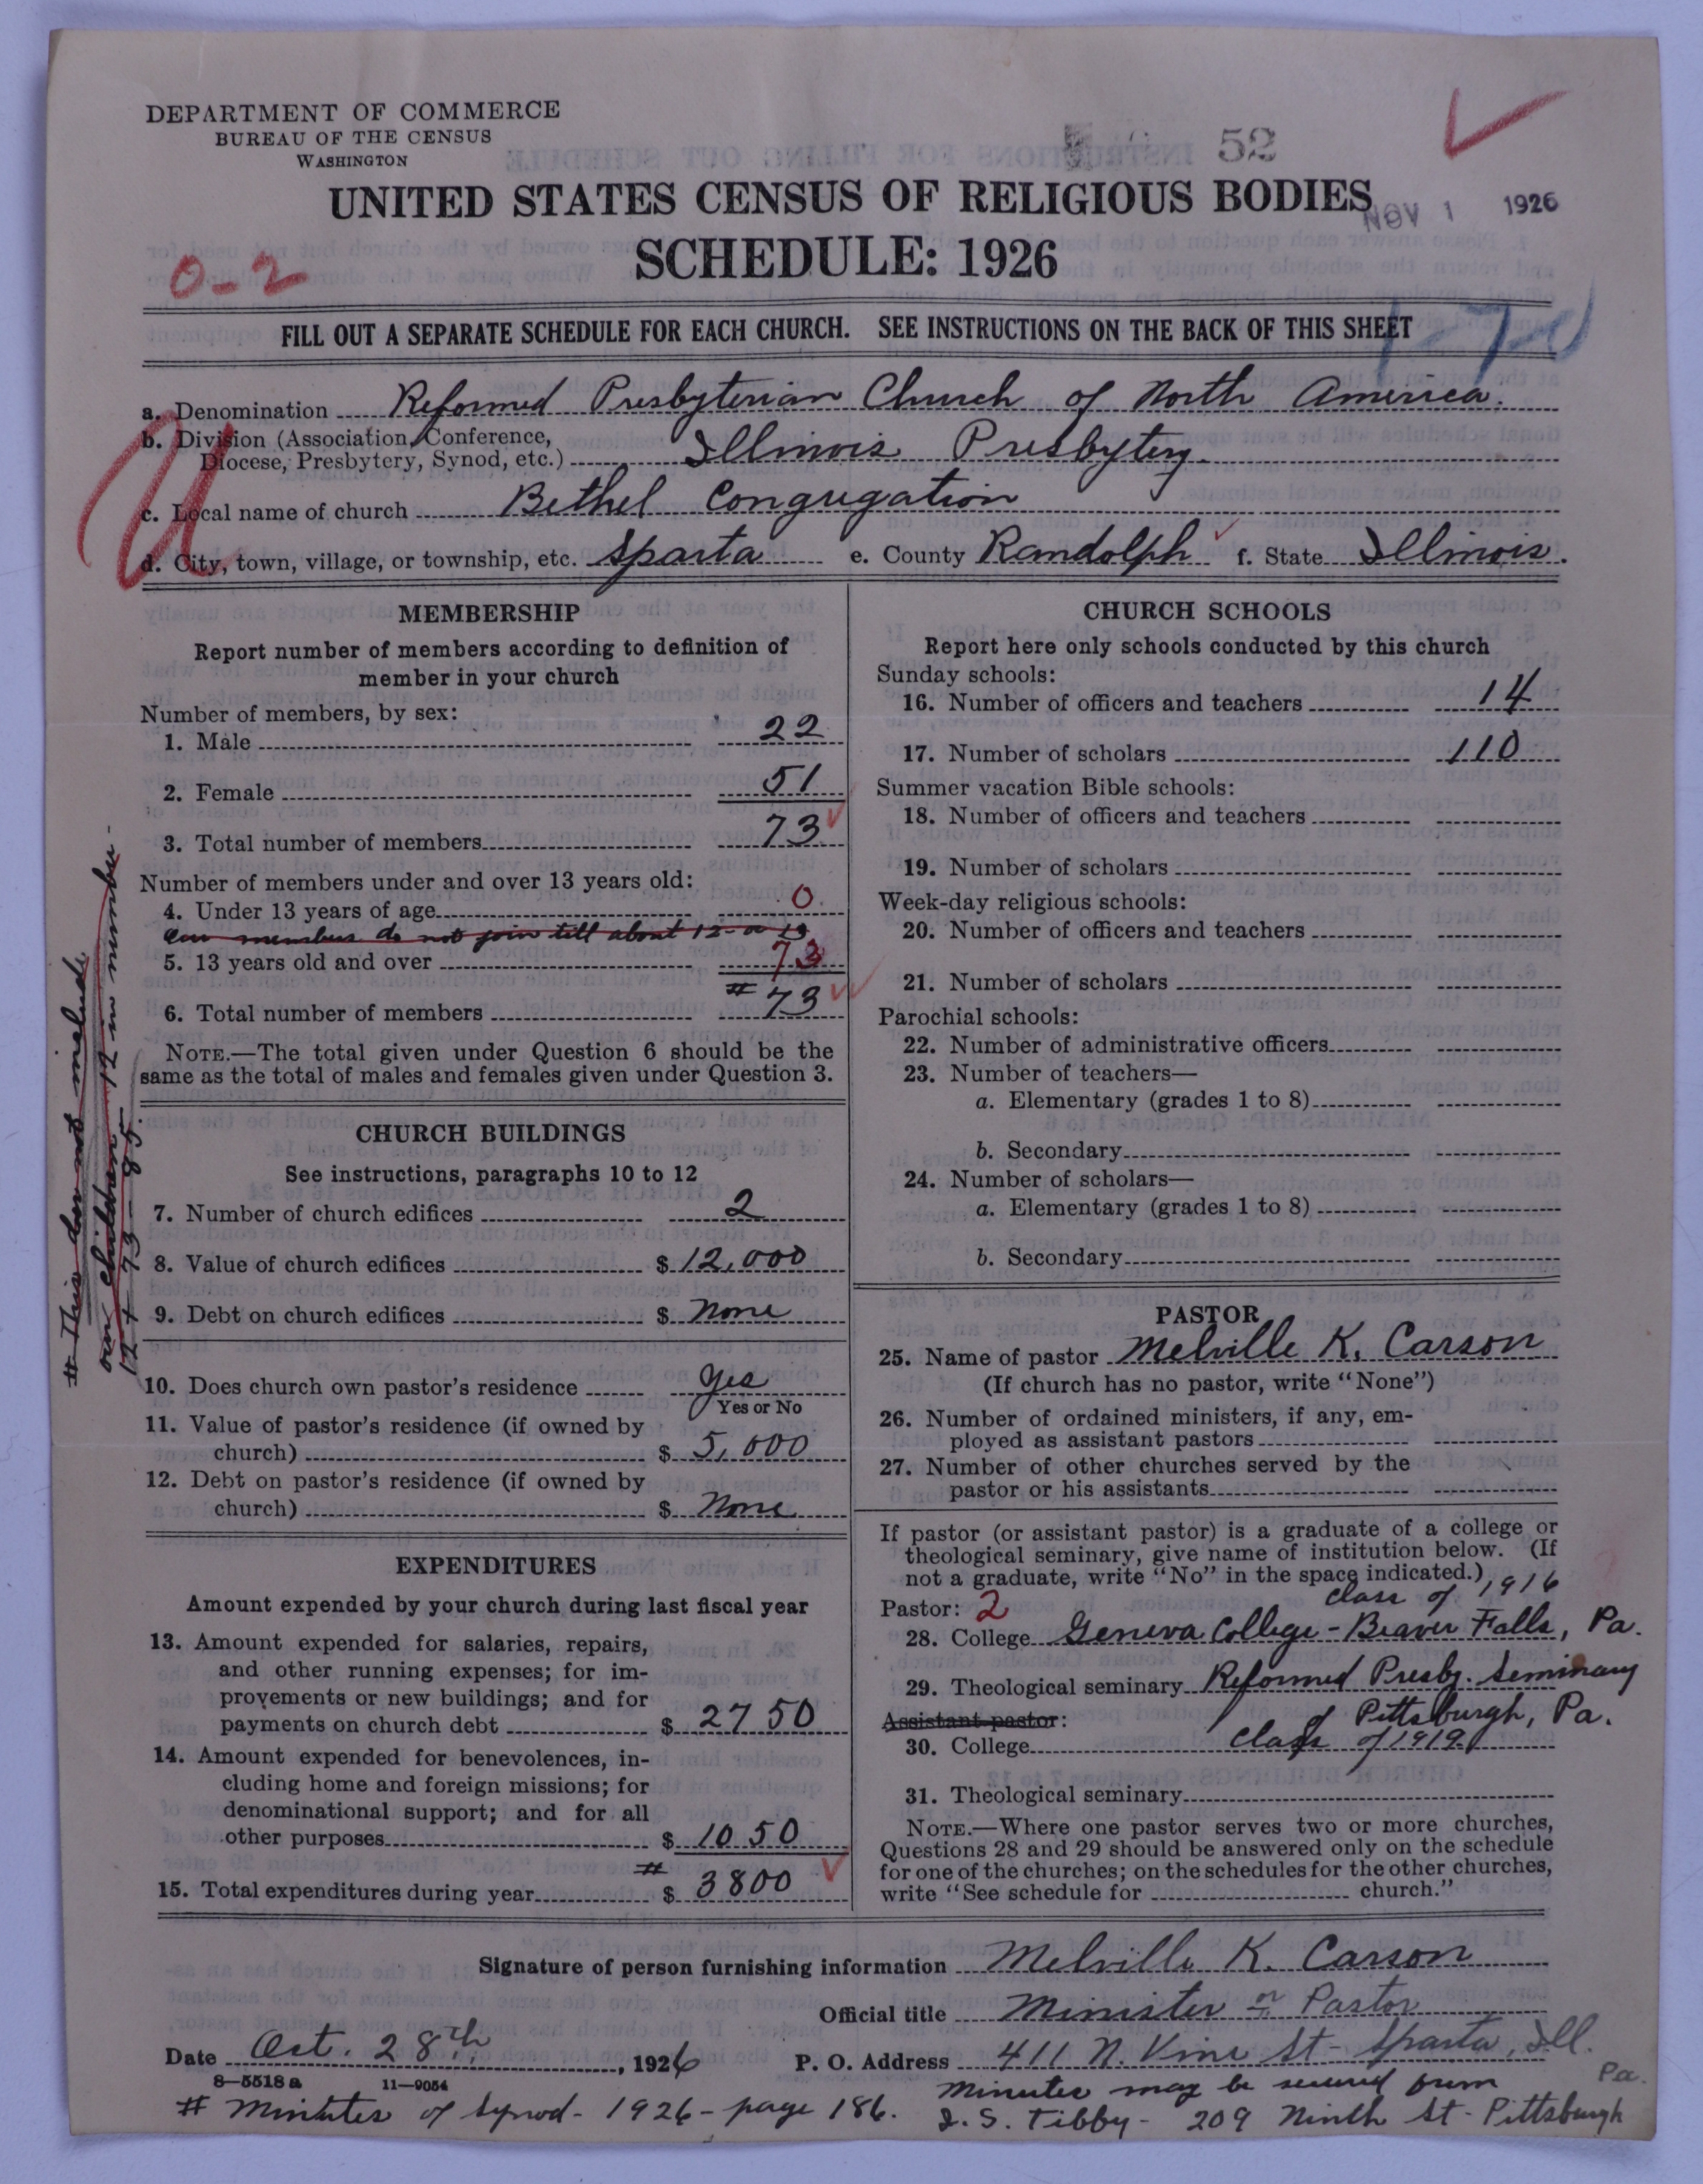 DEPARTMENT OF COMMERCE
BUREAU OF THE CENSUS
WASHINGTON
52
UNITED STATES CENSUS OF RELIGIOUS BODIES
NOV 1 1926
SCHEDULE: 1926
0-2
FILL OUT A SEPARATE SCHEDULE FOR EACH CHURCH. SEE INSTRUCTIONS ON THE BACK OF THIS SHEET
a. Denomination Reformed Presbyterian Church of North America.
b. Division (Association, Conference,
Diocese, Presbytery, Synod, etc.) Illinois Presbytery.
c. Local name of church Bethel Congregation
d. City, town, village, or township, etc. Sparta e. County Randolph f. State Illinois.
MEMBERSHIP
Report number of members according to definition of
member in your church
Number of members, by sex:
1. Male 22
2. Female 51
3. Total number of members 73
Number of members under and over 13 years old:
4. Under 13 years of age 0
Our members do not join till about 12 or 13
5. 13 years old and over 73
6. Total number of members # 73
NOTE.—The total given under Question 6 should be the
same as the total of males and females given under Question 3.
# This does not include
our children 12 in number.
12 + 73 - 85.
CHURCH BUILDINGS
See instructions, paragraphs 10 to 12
7. Number of church edifices 2
8. Value of church edifices $ 12,000
9. Debt on church edifices $ None
10. Does church own pastor's residence Yes
Yes or No
11. Value of pastor's residence (if owned by
church) $ 5,000
12. Debt on pastor's residence (if owned by
church) $ None
EXPENDITURES
Amount expended by your church during last fiscal year
13. Amount expended for salaries, repairs,
and other running expenses; for im-
provements or new buildings; and for
payments on church debt $ 2750
14. Amount expended for benevolences, in-
cluding home and foreign missions; for
denominational support; and for all
other purposes $ 1050
15. Total expenditures during year # $ 3800
CHURCH SCHOOLS
Report here only schools conducted by this church
Sunday schools:
16. Number of officers and teachers 14
17. Number of scholars 110
Summer vacation Bible schools:
18. Number of officers and teachers
19. Number of scholars
Week-day religious schools:
20. Number of officers and teachers
21. Number of scholars
Parochial schools:
22. Number of administrative officers
23. Number of teachers—
a. Elementary (grades 1 to 8)
b. Secondary
24. Number of scholars—
a. Elementary (grades 1 to 8)
b. Secondary
PASTOR
25. Name of pastor Melville K. Carson
(If church has no pastor, write "None")
26. Number of ordained ministers, if any, em-
ployed as assistant pastors
27. Number of other churches served by the
pastor or his assistants
If pastor (or assistant pastor) is a graduate of a college or
theological seminary, give name of institution below. (If
not a graduate, write "No" in the space indicated.)
Pastor: 2 class of 1916
28. College Geneva College - Beaver Falls, Pa.
29. Theological seminary Reformed Presby. Seminary
Assistant pastor: Pittsburgh, Pa.
30. College Class of 1919.
31. Theological seminary
NOTE.—Where one pastor serves two or more churches,
Questions 28 and 29 should be answered only on the schedule
for one of the churches; on the schedules for the other churches,
write "See schedule for church."
Signature of person furnishing information Melville K. Carson
Official title Minister or Pastor
Date Oct. 28th, 1926 P. O. Address 411 N. Vine St - Sparta, Ill.
8-5518a 11-9054
# Minutes of Synod - 1926 - page 186.
Minutes may be secured from
J. S. Tibby - 209 Ninth St - Pittsburgh Pa.